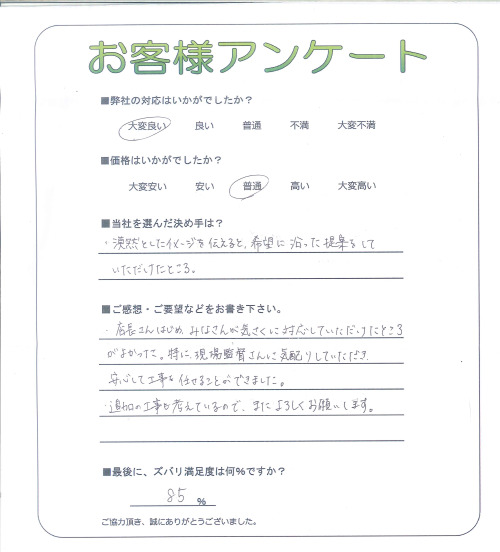 お客様アンケート
■弊社の対応はいかがでしたか？
大変良い 良い 普通 不満 大変不満
■価格はいかがでしたか？
大変安い 安い 普通 高い 大変高い
■当社を選んだ決め手は？
・漠然としたイメージを伝えると、希望に沿った提案をして
いただけたところ。
■ご感想・ご要望などをお書き下さい。
・店長さんはじめ、みなさんが気さくに対応していただけたところ
がよかった。特に、現場監督さんに気配りしていただき
安心して工事を任せることができました。
・追加の工事も考えているので、またよろしくお願いします。
■最後に、ズバリ満足度は何%ですか？
85 %
ご協力頂き、誠にありがとうございました。